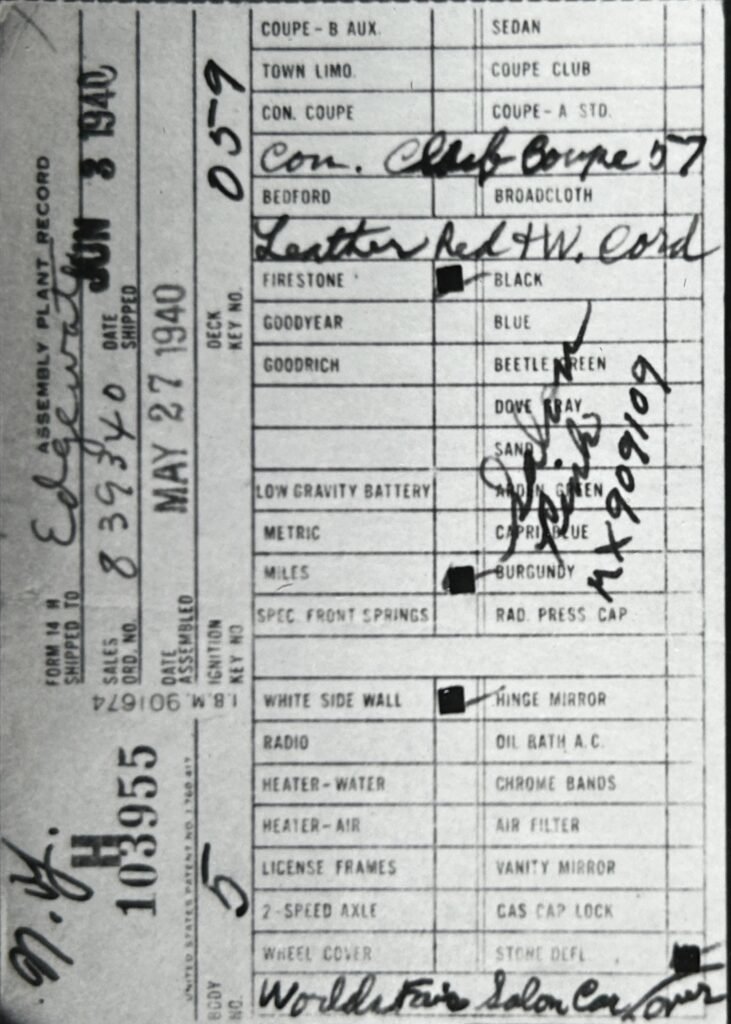 ASSEMBLY PLANT RECORD
FORM 14 H
SHIPPED TO Edgewater
SALES ORD. NO. 839340 DATE SHIPPED JUN 3 1940
DATE ASSEMBLED MAY 27 1940
IGNITION KEY NO. DECK KEY NO. 059
I.B.M. 901674
N.Y.
H
103955
UNITED STATES PATENT NO. 1,780,417
BODY NO. 5
COUPE-B AUX. SEDAN
TOWN LIMO. COUPE CLUB
CON. COUPE COUPE-A STD.
Con. Club Coupe 57
BEDFORD BROADCLOTH
Leather Red + W. Cord
FIRESTONE BLACK
GOODYEAR BLUE
GOODRICH BEETLE GREEN
DOVE GRAY
SAND
LOW GRAVITY BATTERY ARDEN GREEN
METRIC CAPRI BLUE
MILES BURGUNDY
Salon
MX909109
SPEC. FRONT SPRINGS RAD. PRESS CAP
WHITE SIDE WALL HINGE MIRROR
RADIO OIL BATH A.C.
HEATER-WATER CHROME BANDS
HEATER-AIR AIR FILTER
LICENSE FRAMES VANITY MIRROR
2-SPEED AXLE GAS CAP LOCK
WHEEL COVER STONE DEFL.
Worlds Fair Salon Car over